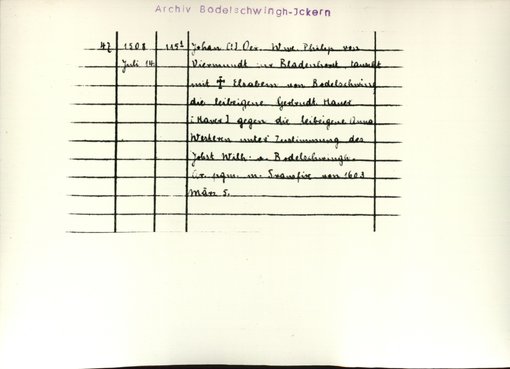 Archiv Bodelschwingh-Jckern
47 1508 115¹ Johan (?) Oer. Wwe. Philip von
Juli 14. Viermundt zur Bladenhorst tauscht
mit ‡ Elsabern von Bodelschwing
die leibeigene Gertrudt Maner
gegen die leibeigene Anna
Westeren unter Zustimmung des
Johst Wilh. v. Bodelschwingh.
Or. pgm. m. Transfixe von 1603
März 5.